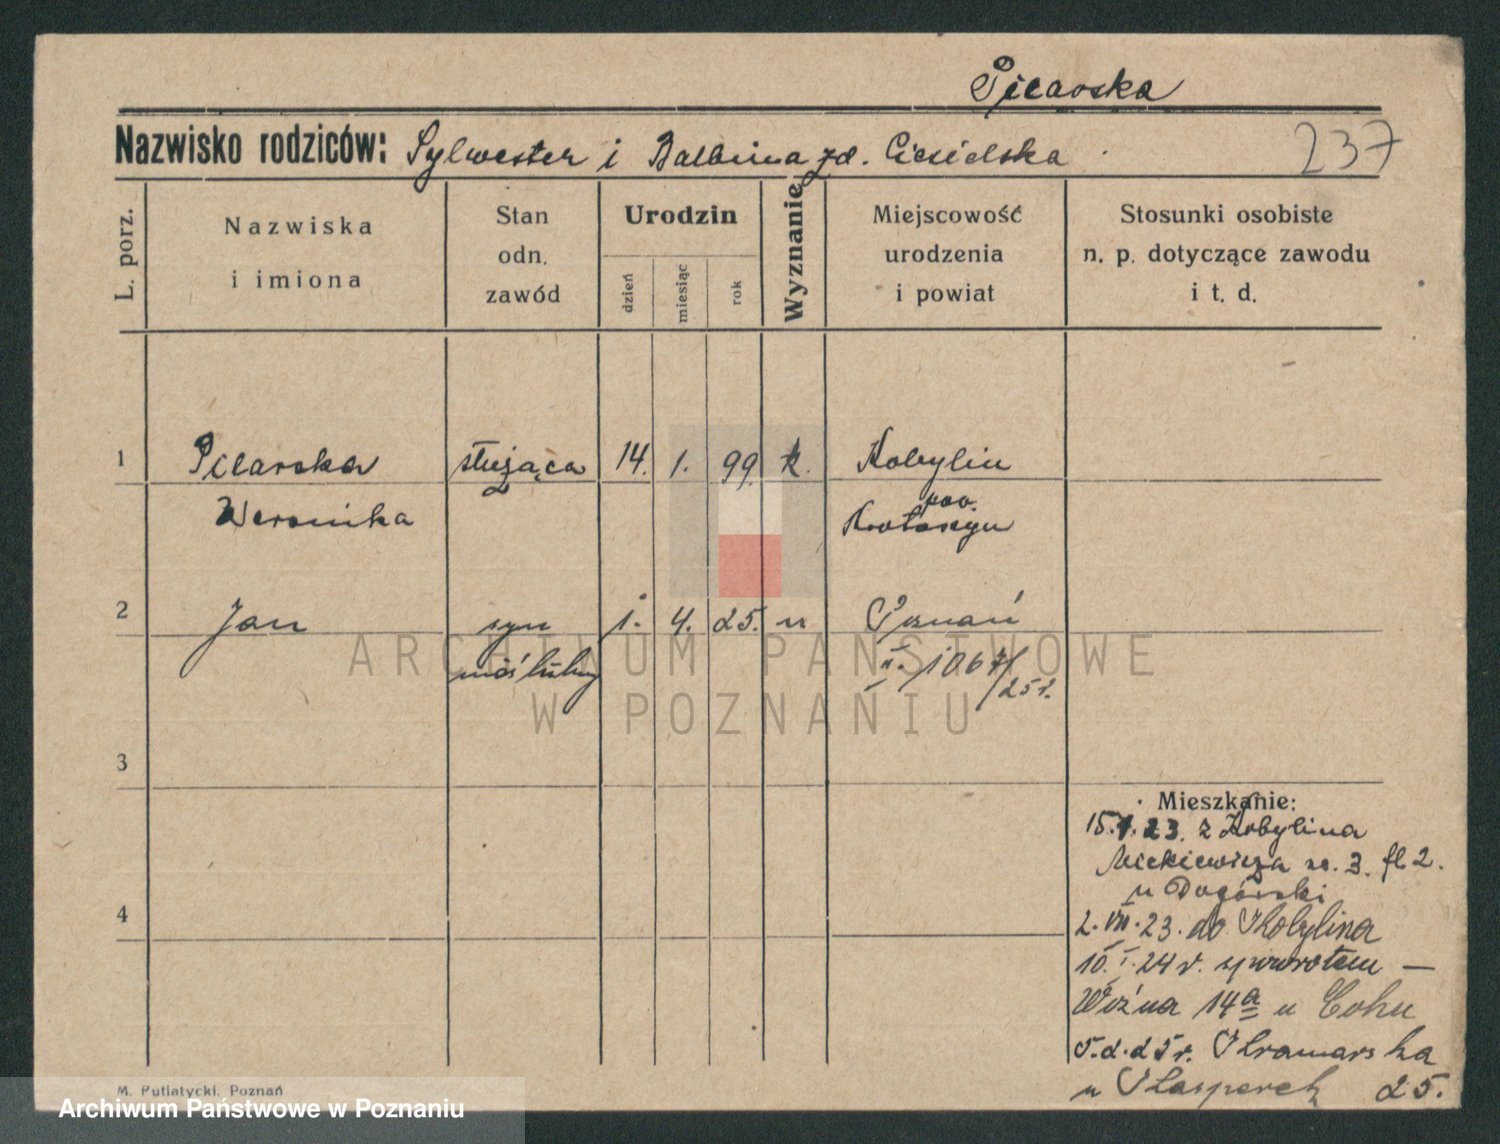 Pilarska
Nazwisko rodziców: Sylwester i Balbina zd. Ciesielska
237
L. porz.
Nazwiska
i imiona
Stan
odn.
zawód
Urodzin
dzień
miesiąc
rok
Wyznanie
Miejscowość
urodzenia
i powiat
Stosunki osobiste
n. p. dotyczące zawodu
i t. d.
1 Pilarska służąca 14. 1. 99. k. Kobylin
Weronika pow.
Krotoszyn
2 Jan syn 1. 4. 25. n Poznań
nieślubny 1067/25r.
3
4
Mieszkanie:
15.1.23. z Kobylina
Mickiewicza nr. 3. fl 2.
u Pogórski
2.VII.23. do Kobylina
10.I.24 r. zpowrotem —
Woźna 14a u Cohu
5.2.25 r. Kramarska
u Kasperek 25.
M. Putiatycki, Poznań
ARCHIWUM PAŃSTWOWE
W POZNANIU
Archiwum Państwowe w Poznaniu